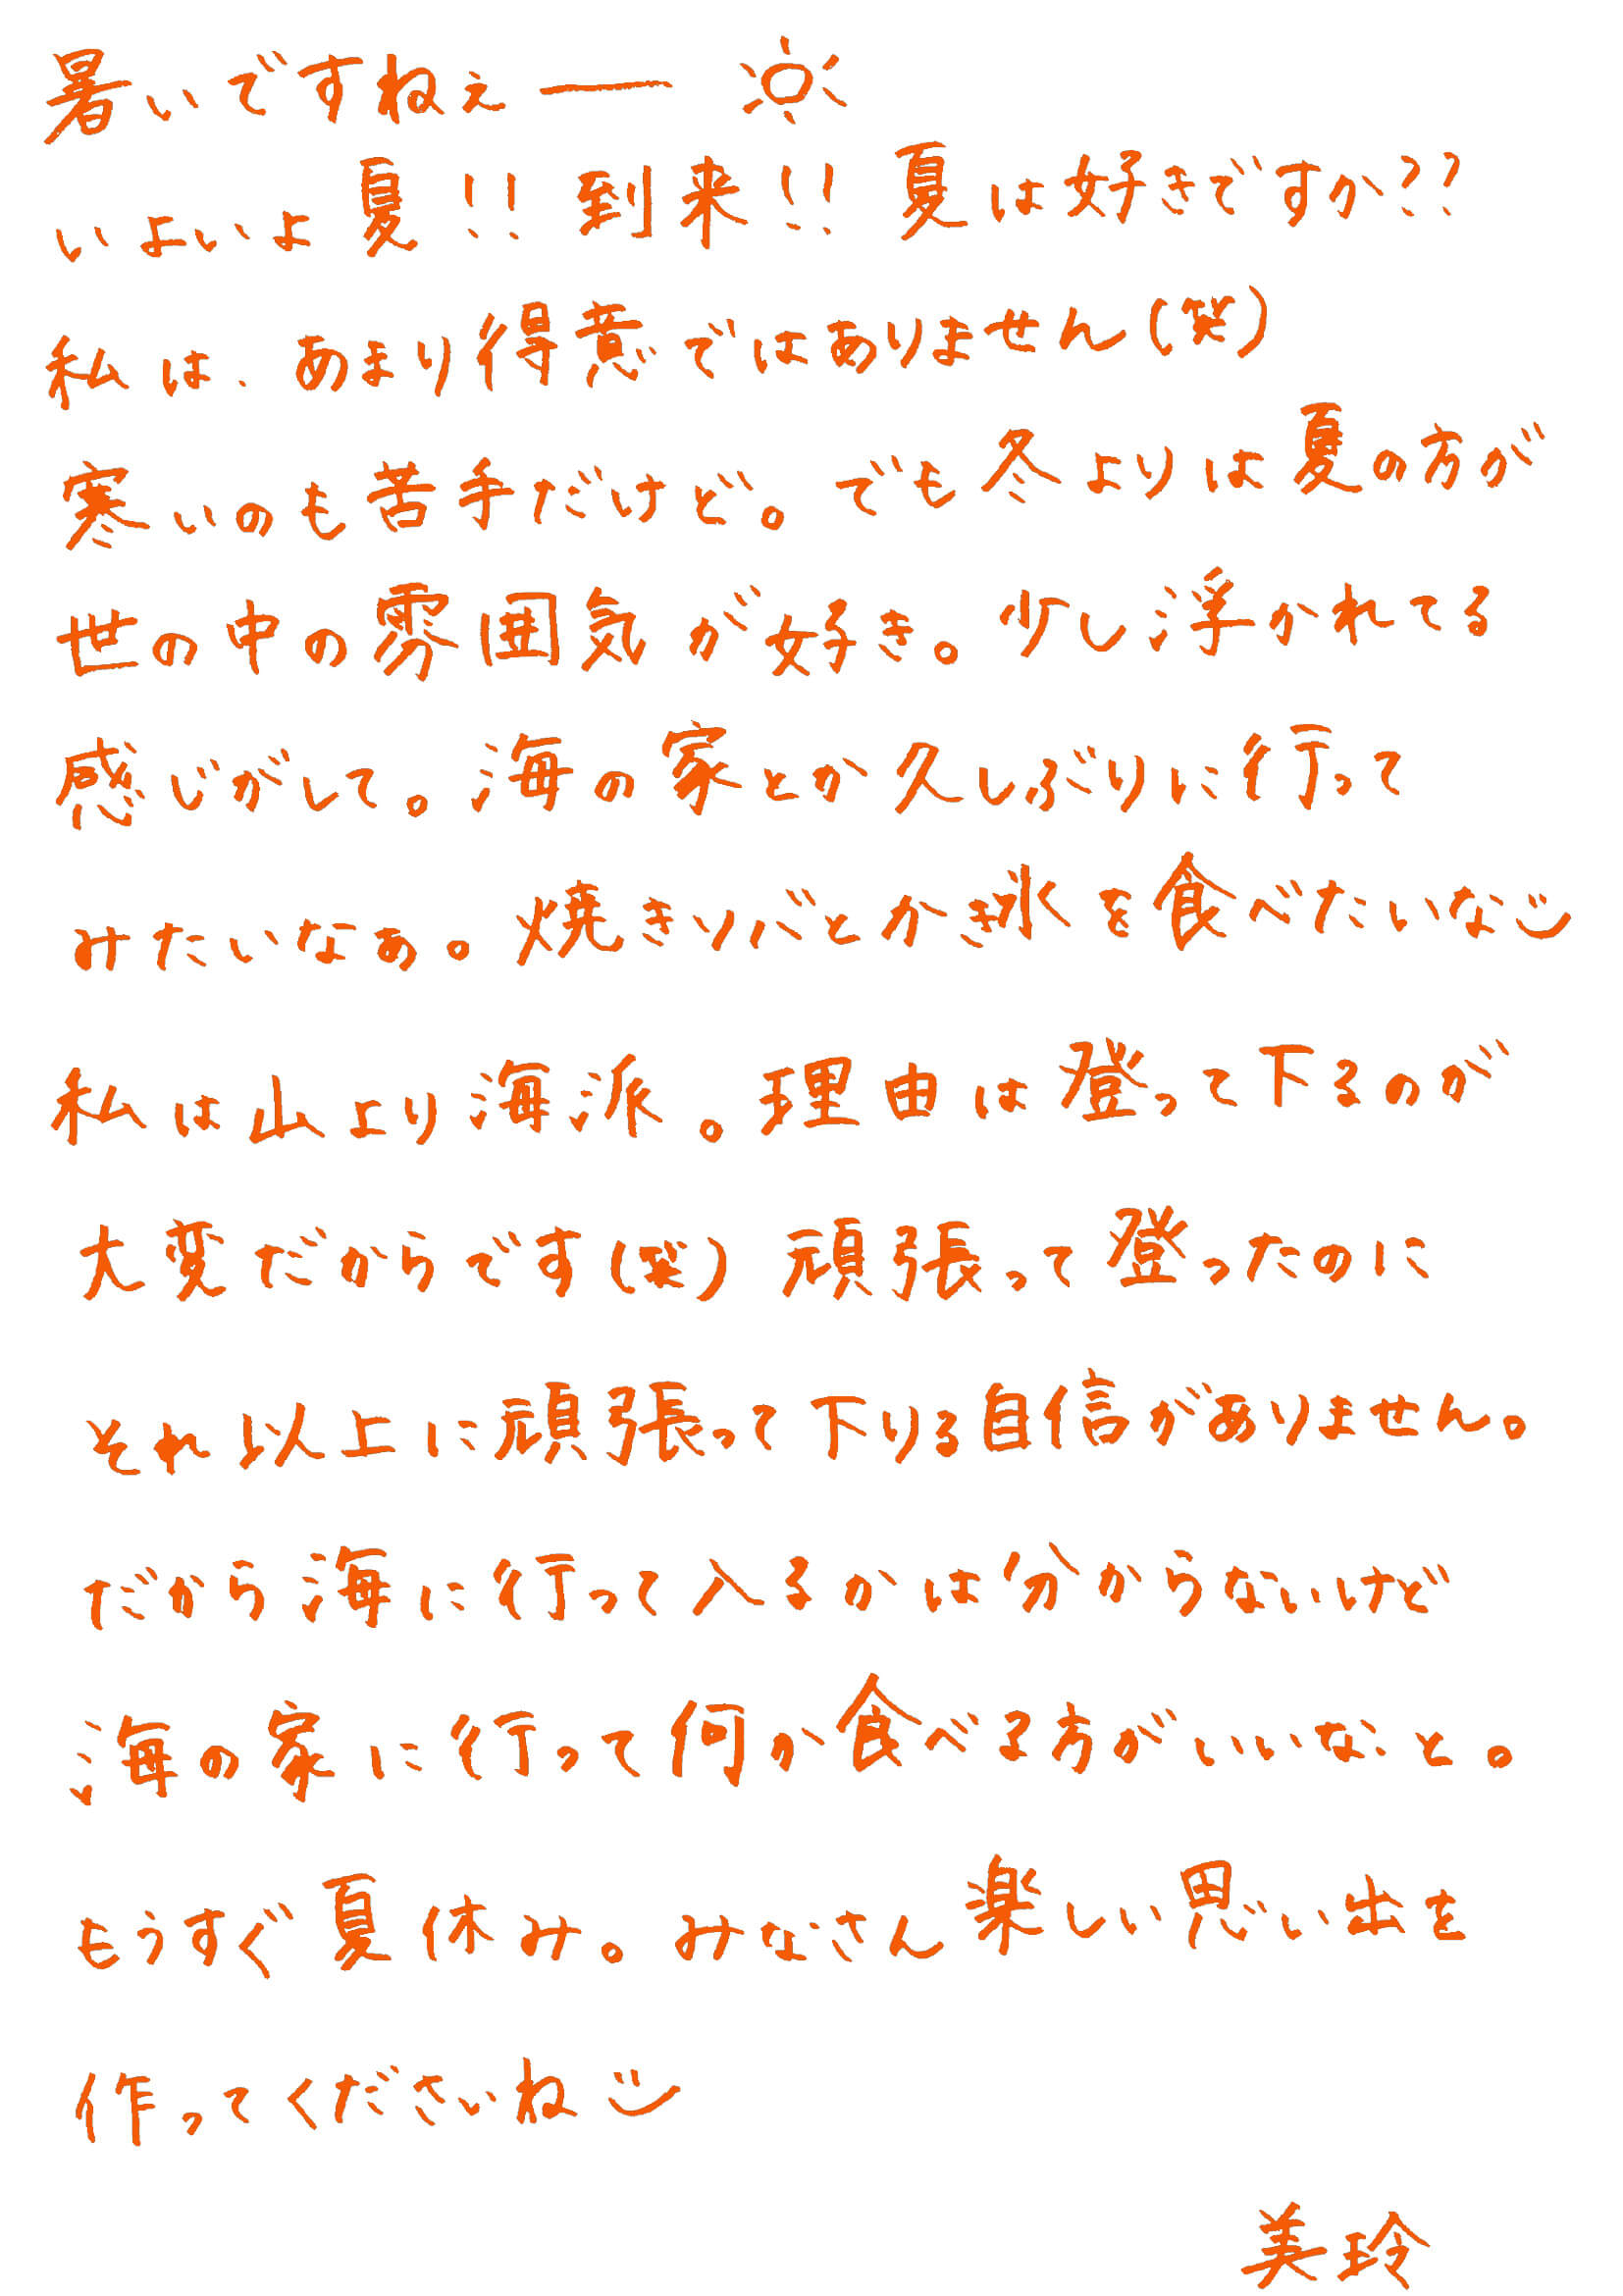 暑いですねぇー
いよいよ夏!!到来!!夏は好きですか??
私は、あまり得意ではありません(笑)
寒いのも苦手だけど。でも冬よりは夏の方が
世の中の雰囲気が好き。少し浮かれてる
感じがして。海の家とか久しぶりに行って
みたいなぁ。焼きソバとかき氷を食べたいな
私は山より海派。理由は登って下るのが
大変だからです(笑)頑張って登ったのに
それ以上に頑張って下りる自信がありません。
だから海に行って入るかは分からないけど
海の家に行って何か食べる方がいいなと。
もうすぐ夏休み。みなさん楽しい思い出を
作ってくださいね
美玲